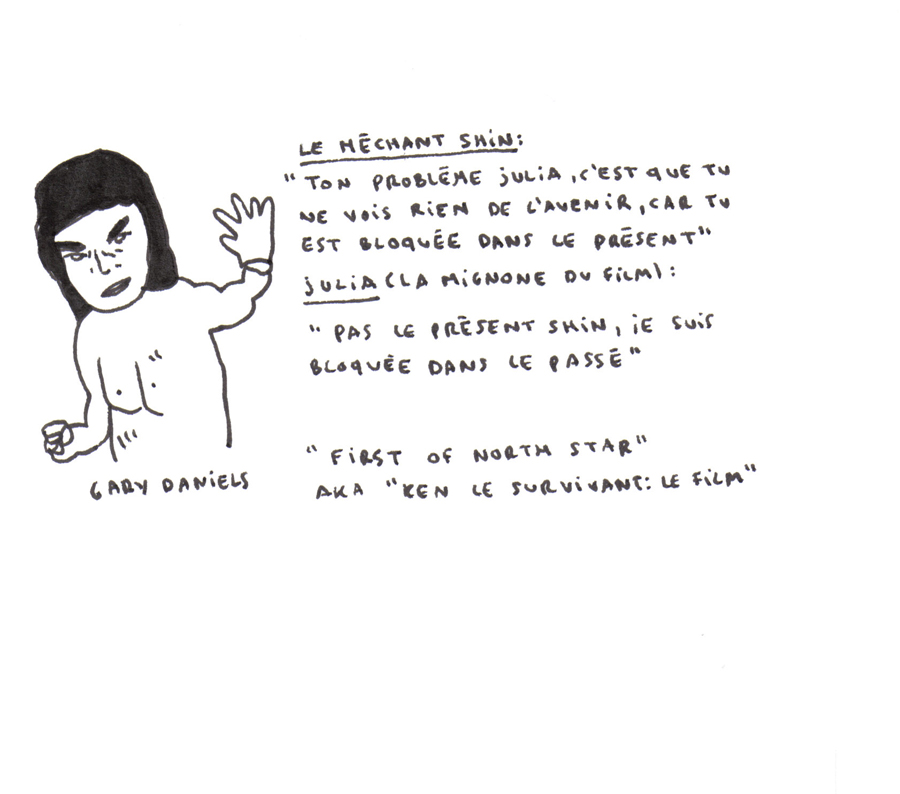 LE MÉCHANT SHiN:
"TON PROBLÉME jULiA, C'EST QUE TU
NE VOiS RiEN DE L'AVENiR, CAR TU
EST BLOQUÉE DANS LE PRÉSENT"
jULiA (LA MiGNONE DU FiLM):
"PAS LE PRÉSENT SHiN, jE SUiS
BLOQUÉE DANS LE PASSÉ"
"FiRST OF NORTH STAR"
AKA "KEN LE SURViVANT: LE FiLM"
GARY DANiELS